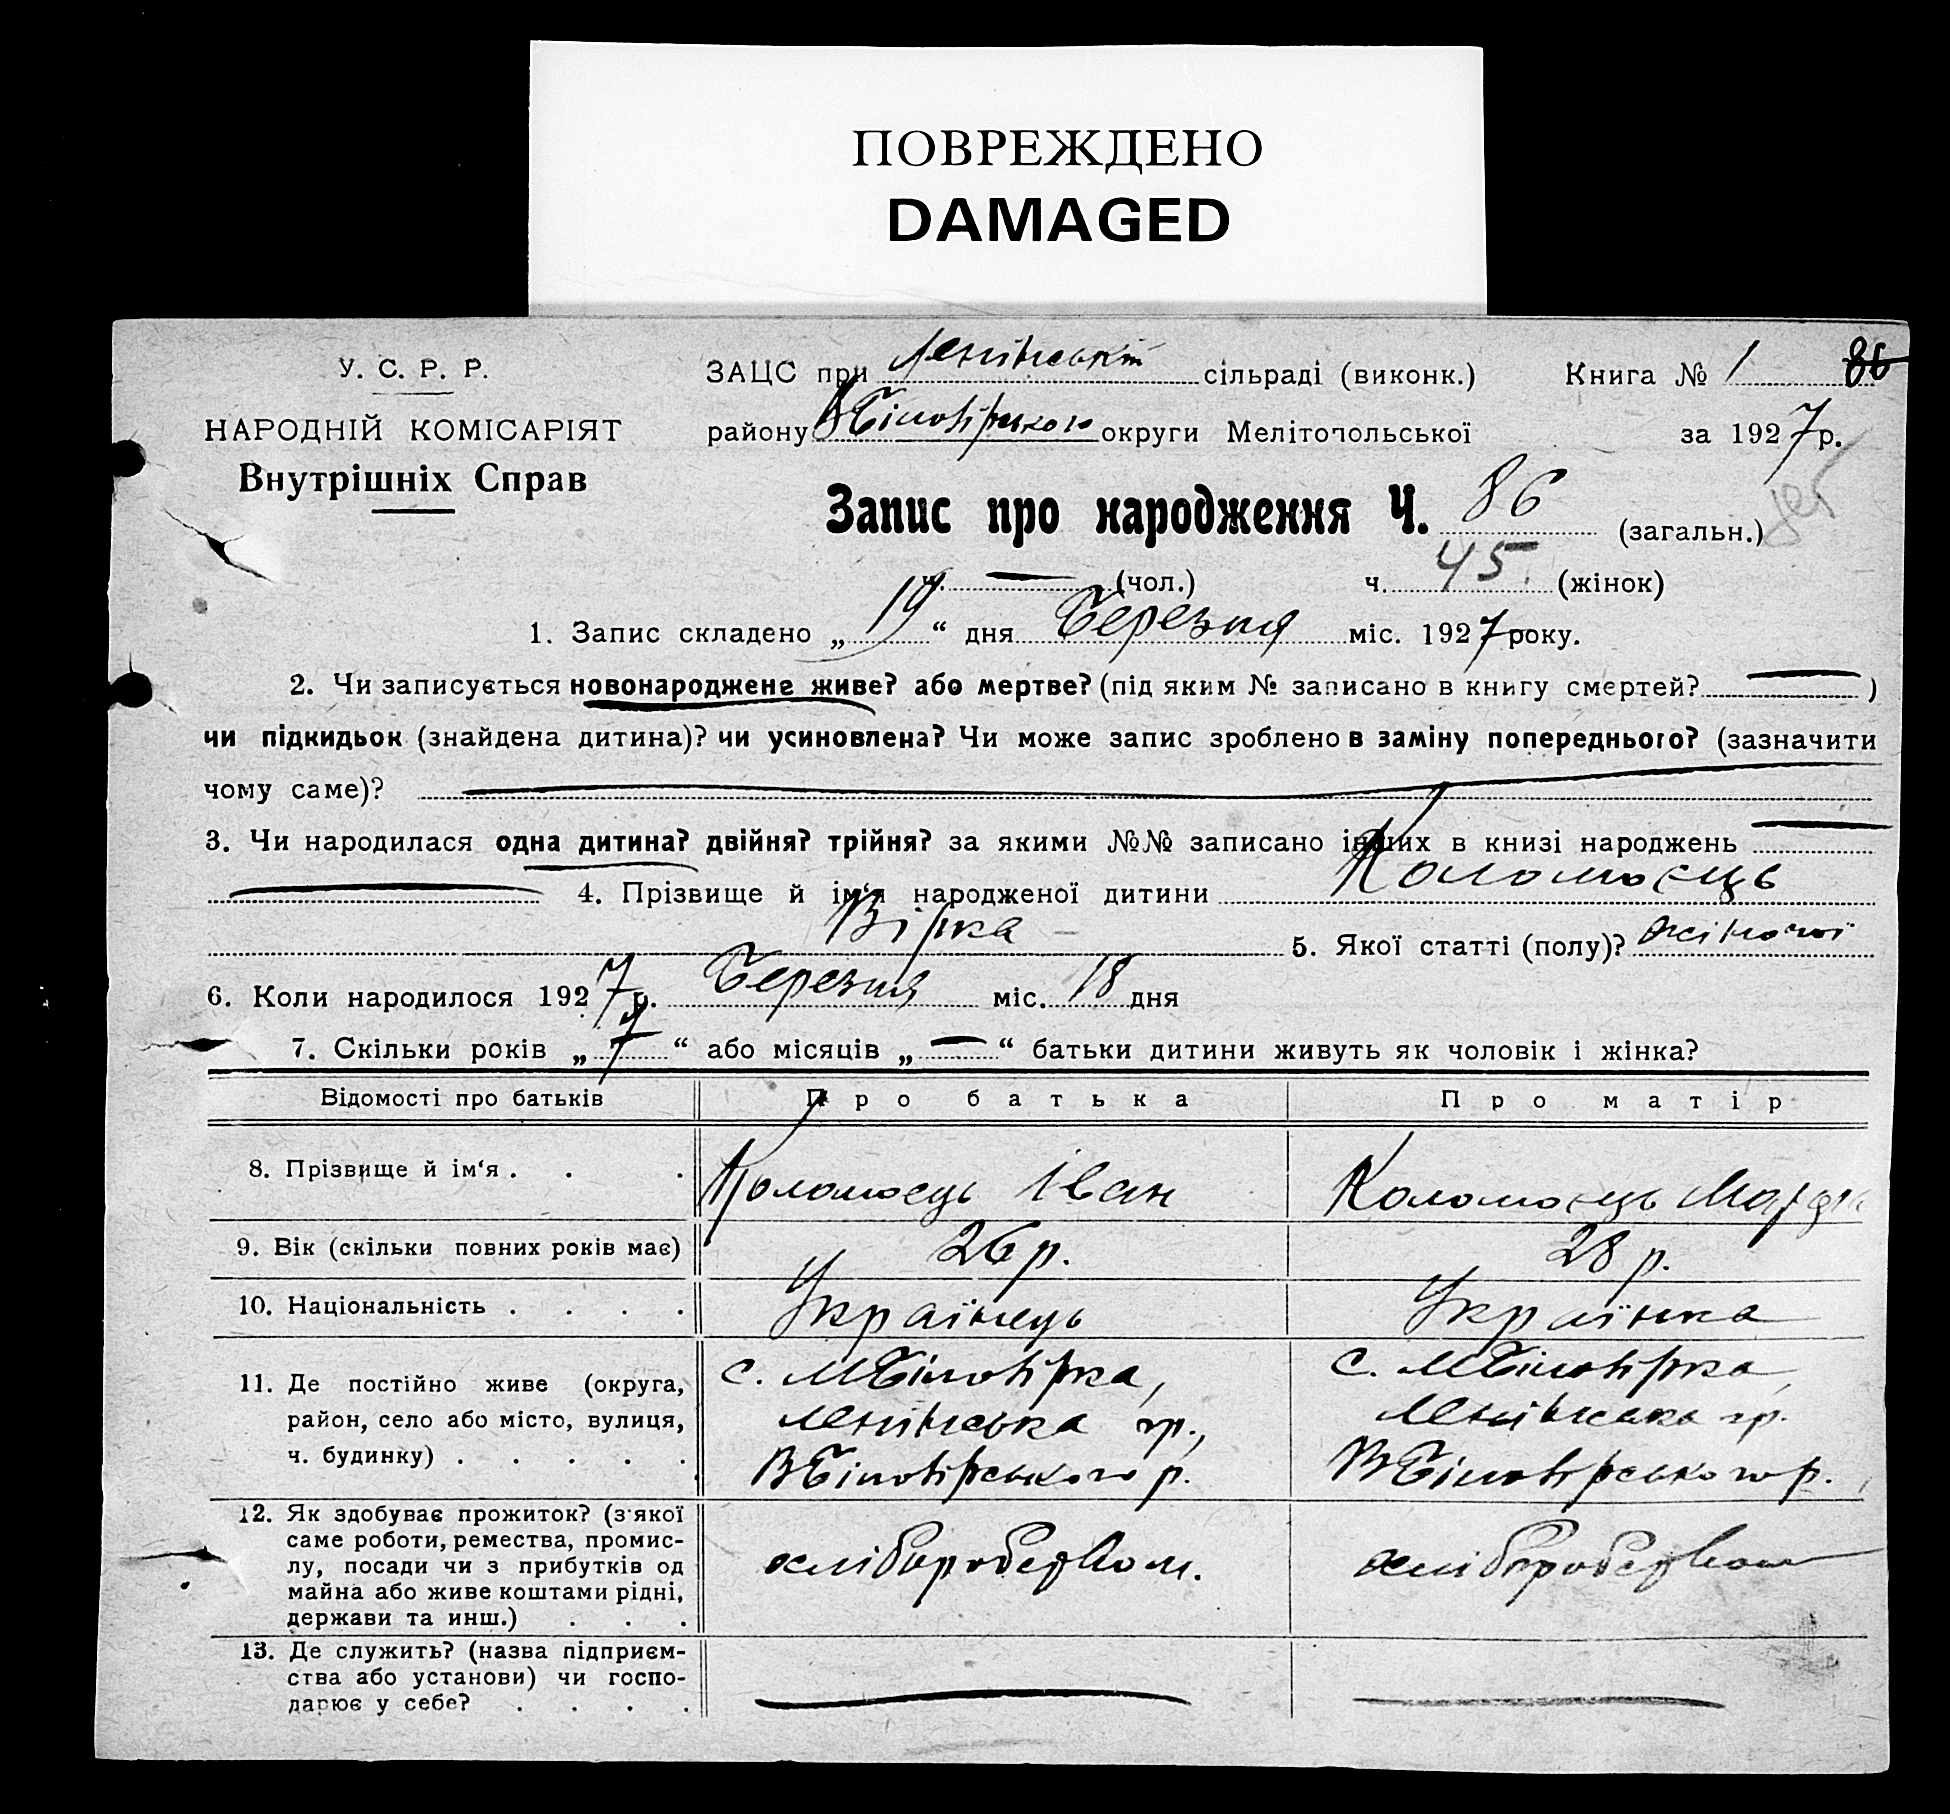 ПОВРЕЖДЕНО
DAMAGED
У. С. Р. Р.
НАРОДНІЙ КОМІСАРІЯТ
Внутрішніх Справ
ЗАЦС при Ленінській сільраді (виконк.) Книга № 1 86
району ВБілозірського округи Мелітопольської за 1927 р.
Запис про народження Ч. 86 (загальн.)
ч. — (чол.) ч. 45. (жінок)
1. Запис складено „19“ дня Березня міс. 1927 року.
2. Чи записується новонароджене живе? або мертве? (під яким № записано в книгу смертей? — )
чи підкидьок (знайдена дитина)? чи усиновлена? Чи може запис зроблено в заміну попереднього? (зазначити
чому саме)? —
3. Чи народилася одна дитина? двійня? трійня? за якими №№ записано інших в книзі народжень —
— 4. Прізвище й ім‘я народженої дитини Коломоєць
Вірка — 5. Якої статті (полу)? жіночої
6. Коли народилося 1927 р. Березня міс. 18 дня
7. Скільки років „7“ або місяців „—“ батьки дитини живуть як чоловік і жінка?
Відомості про батьків Про батька Про матір
8. Прізвище й ім‘я . . . Коломоєць Іван Коломоєць
9. Вік (скільки повних років має) 26 р. 28 р.
10. Національність . . . . Українець Українка
11. Де постійно живе (округа, с. МБілозірка, с. МБілозірка,
район, село або місто, вулиця, Ленінська гр., Ленінська гр.
ч. будинку) . . . . . ВБілозірського р. ВБілозірського р.
12. Як здобуває прожиток? (з'якої
саме роботи, ремества, промис-
лу, посади чи з прибутків од хліборобством. хліборобством
майна або живе коштами рідні,
держави та инш.) . . .
13. Де служить? (назва підприєм-
ства або установи) чи госпо-
дарює у себе? . . . . — —